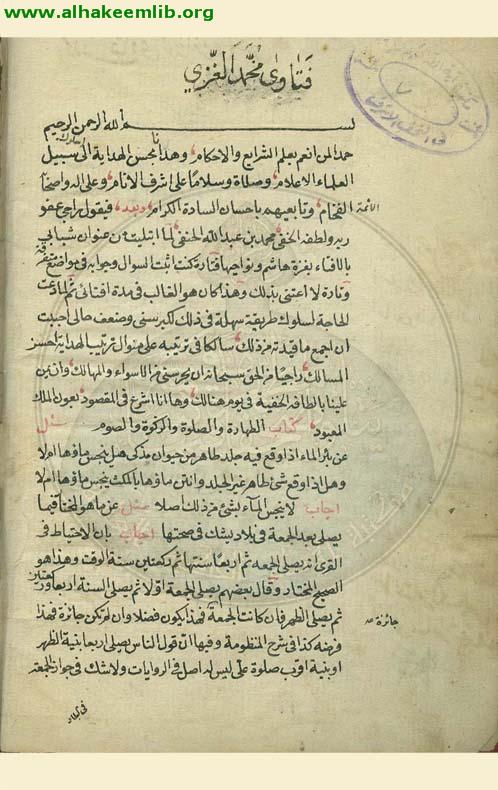 www.alhakeemlib.org
فتاوى محمد الغزي
بسم الله الرحمن الرحيم
حمدا لمن انعم بعلم الشرايع والاحكام وهدانا بحسن الهداية الى سلوك سبيل
العلماء الاعلام وصلاة وسلاما على اشرف الانام وعلى اله واصحابه
الائمة الفخام وتابعيهم باحسان السادة الكرام وبعد فيقول راجي عفو
ربه ولطفه الخفي محمد بن عبد الله الحنفي لما ابتليت من عنوان شبابي
بالافتاء بغزة هاشم ونواحيها فتارة كنت اثبت السوال وجوابه في مواضع متفرقة
وتارة لا اعتني بذلك وهذا كان هو الغالب في مدة افتائي ثم لما دعت
الحاجة لسلوك طريقة سهلة في ذلك لكبر سني وضعف حالي احببت
ان اجمع ما قيدته من ذلك سالكا في ترتيبه على منوال ترتيب الهداية احسن
المسالك راجيا من الحق سبحانه ان يحرسني من الاسواء والمهالك وان يمن
علينا بالطافه الخفية في يوم هنالك وها انا اشرع في المقصود بعون الملك
المعبود كتاب الطهارة والصلوة والزكوة والصوم سئل
عن بئر الماء اذا وقع فيه جلد طاهر من حيوان مذكى هل ينجس ماؤها ام لا
وهل اذا وقع شئ طاهر غير الجلد وانتن ماؤها بالمكث ينجس ماؤها ام لا
اجاب لا ينجس الماء بشئ من ذلك اصلا سئل عن ما هو المختار فيما
يصلى بعد الجمعة في بلاد يشك في صحتها اجاب بان الاحتياط في
القرى ان يصلي الجمعة ثم اربعا سنتها ثم ركعتين سنة الوقت وهذا هو
الصحيح المختار وقال بعضهم يصلي الجمعة اولا ثم يصلي السنة اربعا وركعتين
ثم يصلي الظهر فان كانت الجمعة جائزة فهذا يكون فضلا وان لم تكن جائزة فهذا
فرضه كذا في شرح المنظومة وفيها ان قول الناس يصلي اربعا بنية الظهر
او بنية اقرب صلوة علي ليس له اصل في الروايات ولا شك في جواز الجمعة